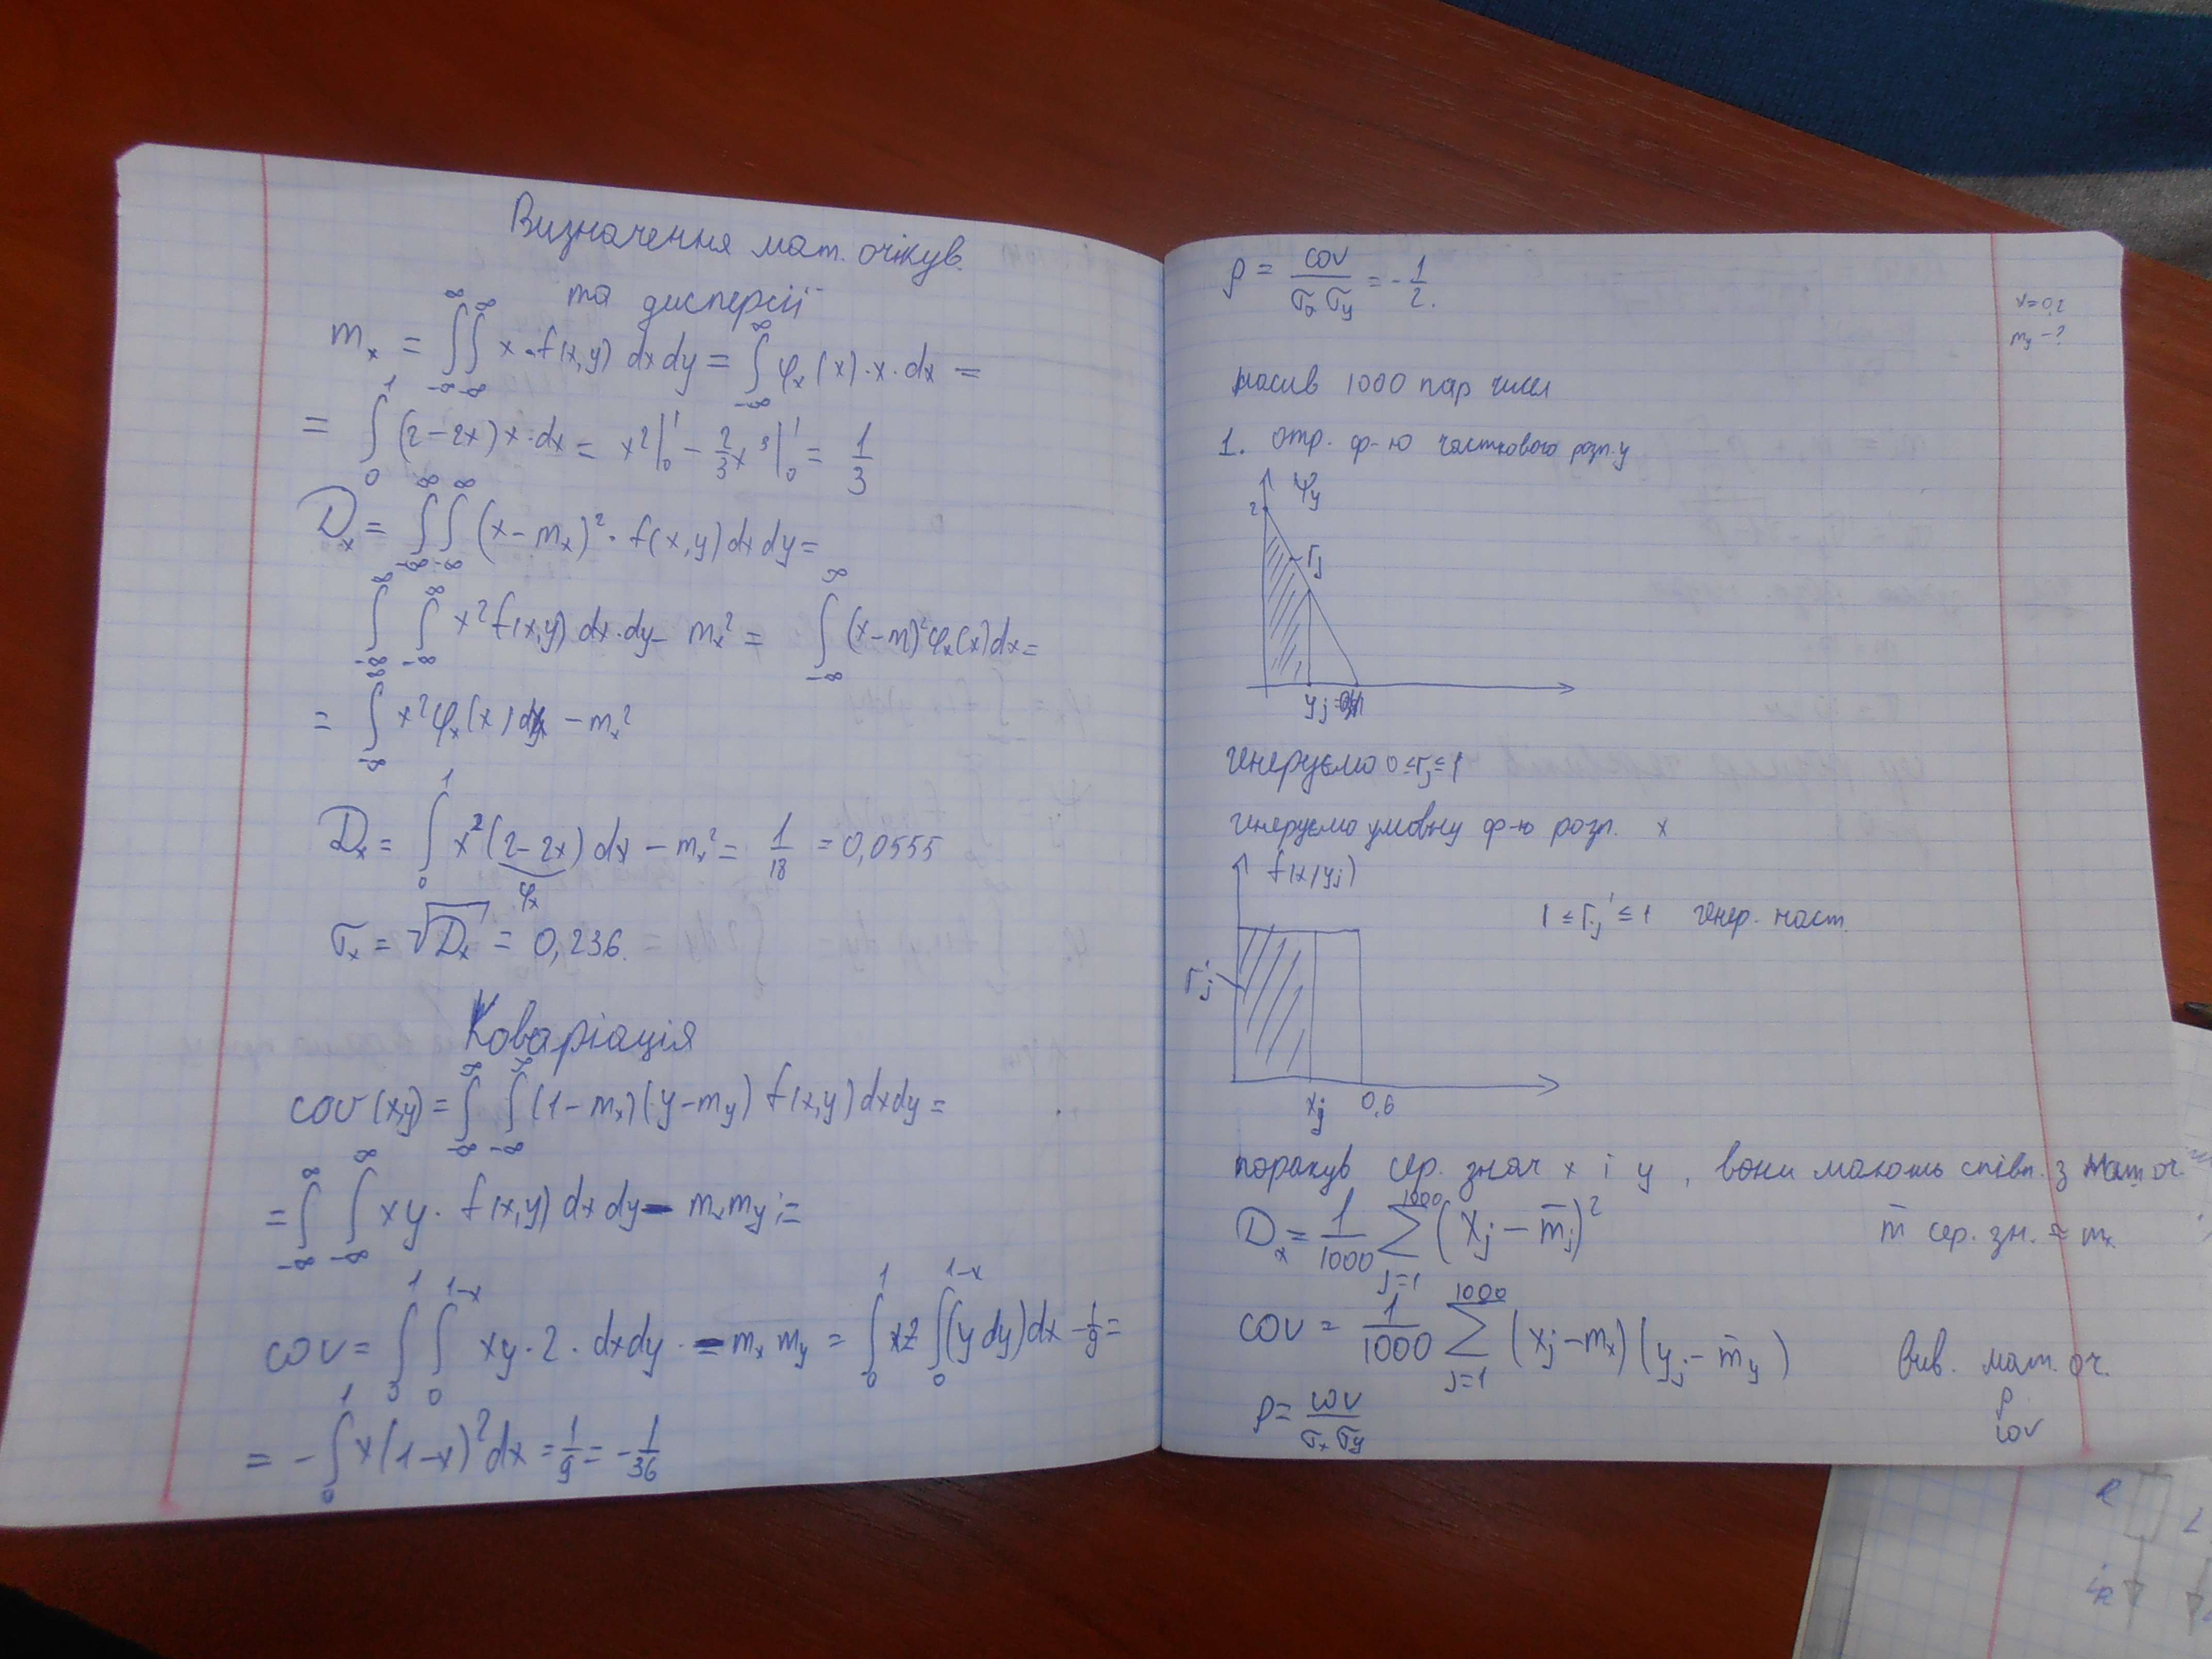 Визначення мат. очікув.
та дисперсії
m_x = ∫_{-∞}^{∞} ∫_{-∞}^{∞} x · f(x,y) dx dy = ∫_{-∞}^{∞} φ_x(x) · x · dx =
= ∫_0^1 (2-2x) x · dx = x²|_0^1 - 2/3 x³|_0^1 = 1/3
D_x = ∫_{-∞}^{∞} ∫_{-∞}^{∞} (x-m_x)² · f(x,y) dx dy =
∫_{-∞}^{∞} ∫_{-∞}^{∞} x² f(x,y) dx · dy - m_x² = ∫_{-∞}^{∞} (x-m)² φ_x(x) dx =
= ∫_{-∞}^{∞} x² φ_x(x) dx - m_x²
D_x = ∫_0^1 x² (2-2x) dx - m_x² = 1/18 = 0,0555
φ_x
σ_x = √D_x = 0,236.
Коваріація
cov(x,y) = ∫_{-∞}^{∞} ∫_{-∞}^{∞} (1-m_x)(y-m_y) f(x,y) dx dy =
= ∫_{-∞}^{∞} ∫_{-∞}^{∞} xy · f(x,y) dx dy - m_x m_y =
cov = ∫_0^1 ∫_0^{1-x} xy · 2 · dx dy - m_x m_y = ∫_0^1 x2 ∫_0^{1-x} (y dy) dx - 1/9 =
= - ∫_0^1 x(1-x)² dx = 1/9 = - 1/36
ρ = cov / σ_x σ_y = - 1/2.
x=0,2
m_y - ?
масив 1000 пар чисел
1. отр. ф-ю часткового розп. y
φ_y
2
r_j
y_j =
генеруємо 0 ≤ r_j ≤ 1
генеруємо умовну ф-ю розп. x
f(x/y_j)
1 ≤ r_j' ≤ 1 генер. наст.
r_j'
x_j 0,6
порахув сер. знач x і y , вони мають співп. з мат. оч.
D_x = 1/1000 Σ_{j=1}^{1000} (x_j - m̄_j)²
m̄ сер. зн. ≈ m_x
cov = 1/1000 Σ_{j=1}^{1000} (x_j - m_x)(y_j - m̄_y)
Вив. мат. оч.
ρ
cov
ρ = cov / σ_x σ_y
R
L
i_R